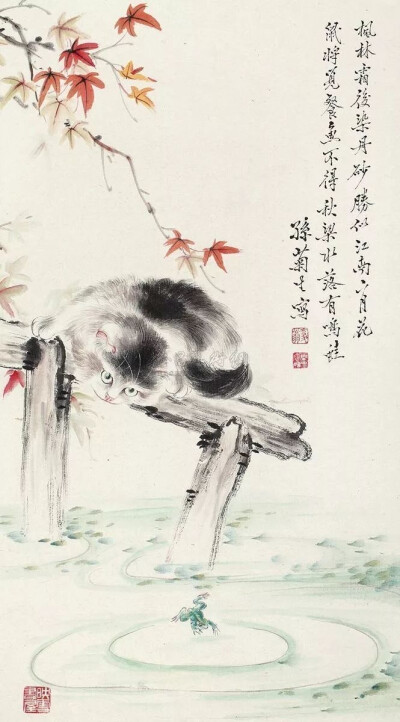 楓林霜後染丹砂勝似江南二月花
將覓餐魚不得秋梁水落有鳴蛙
孫菊生寫